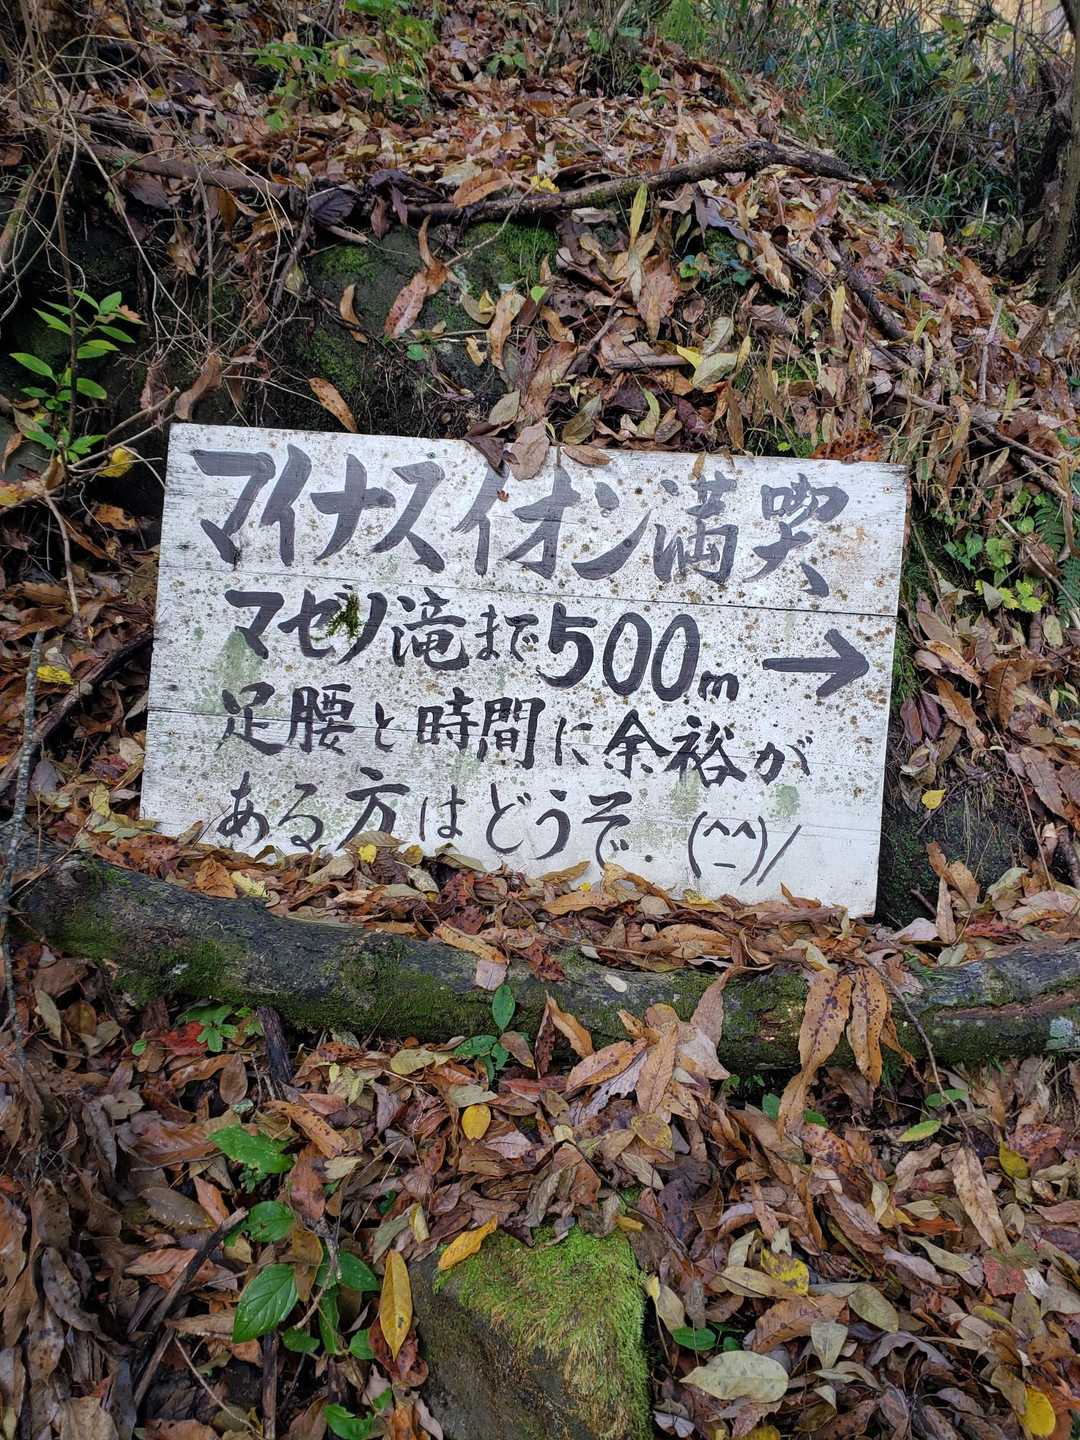 マイナスイオン満喫
マゼノ滝まで500m →
足腰と時間に余裕が
ある方はどうぞ (^_^)/